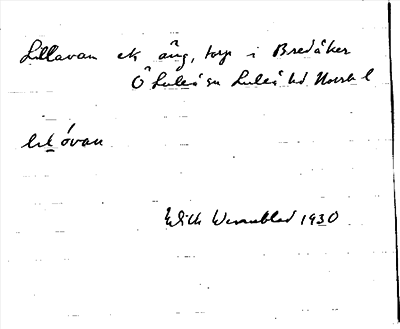 Lillavan ek äng, torp i Bredåker
Ö Luleå sn Luleå hd Norrb l
lɩl óvan
Edith Wennblad 1930